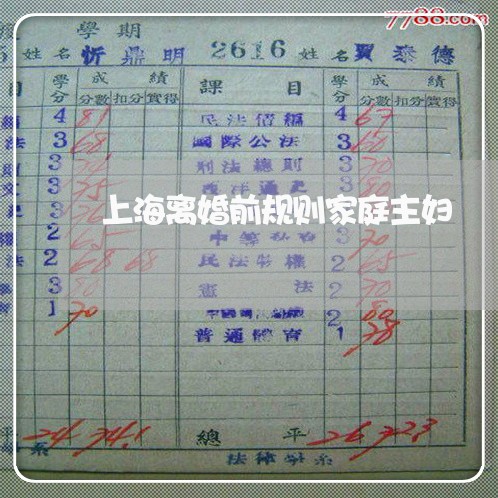 7788.com
學期
姓名 忻鼎明 2616 姓名 賈泰德
目 學分 成績 課目 學分 成績
分數 扣分 實得 分數 扣分 實得
4 81 民法債編 4 67
法 3 68 國際公法 3 60
3 刑法總則 3 70
文 3 75 西洋通史 3 80
上海离婚前规则家庭主妇
2 65 3 70
法 2 68 68 民法物權 2 65
3 80 憲法 2 70
1 70 2 80
普通體育 1 78
平 24 74.1 總平 26 72.3
系 法律學系